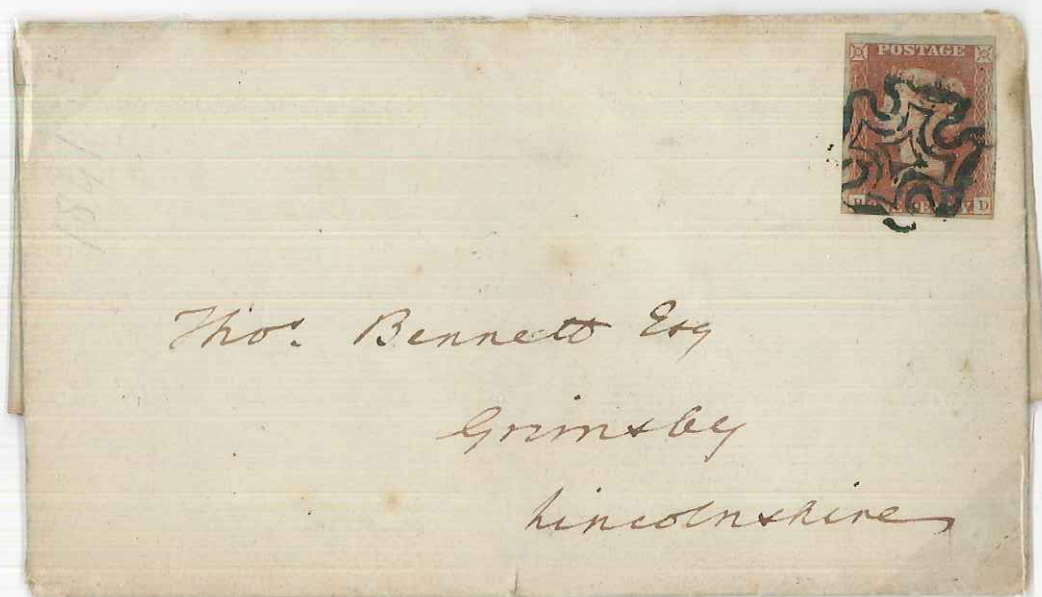 POSTAGE
Thos. Bennett Esq
Grimsby
Lincolnshire
1841